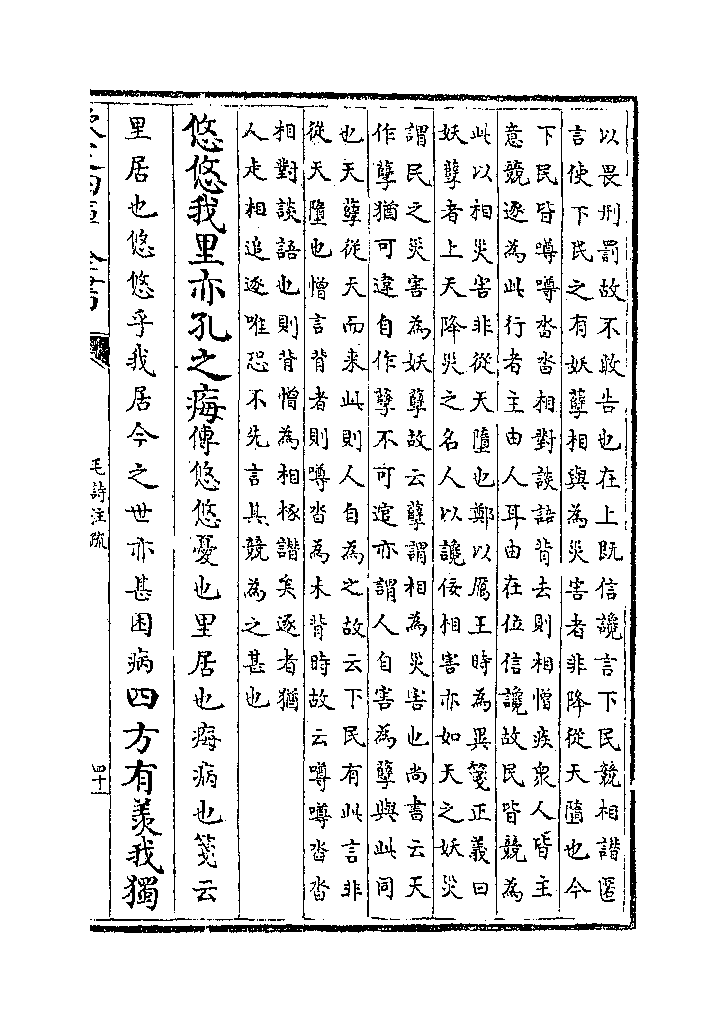 以畏刑罰故不敢告也在上既信讒言下民競相譖匿
言使下民之有妖孽相與為災害者非降從天隨也今
下民皆噂噂沓沓相對談語背去則相憎疾衆人皆主
意競逐為此行者主由人耳由在位信讒故民皆競為
此以相災害非從天隨也鄭以厲王時為異箋正義曰
妖孽者上天降災之名人以讒佞相害亦如天之妖災
謂民之災害為妖孽故云孽謂相為災害也尚書云天
作孽猶可違自作孽不可逭亦謂人自害為孽與此同
也天孽從天而来此則人自為之故云下民有此言非
從天隨也憎言背者則噂沓為未背時故云噂噂沓沓
相對談語也則背憎為相椓譖矣逐者猶
人走相追逐唯恐不先言其競為之甚也
悠悠我里亦孔之痗傳悠悠憂也里居也痗病也箋云
里居也悠悠乎我居今之世亦甚困病四方有羡我獨
毛詩注疏
四十一